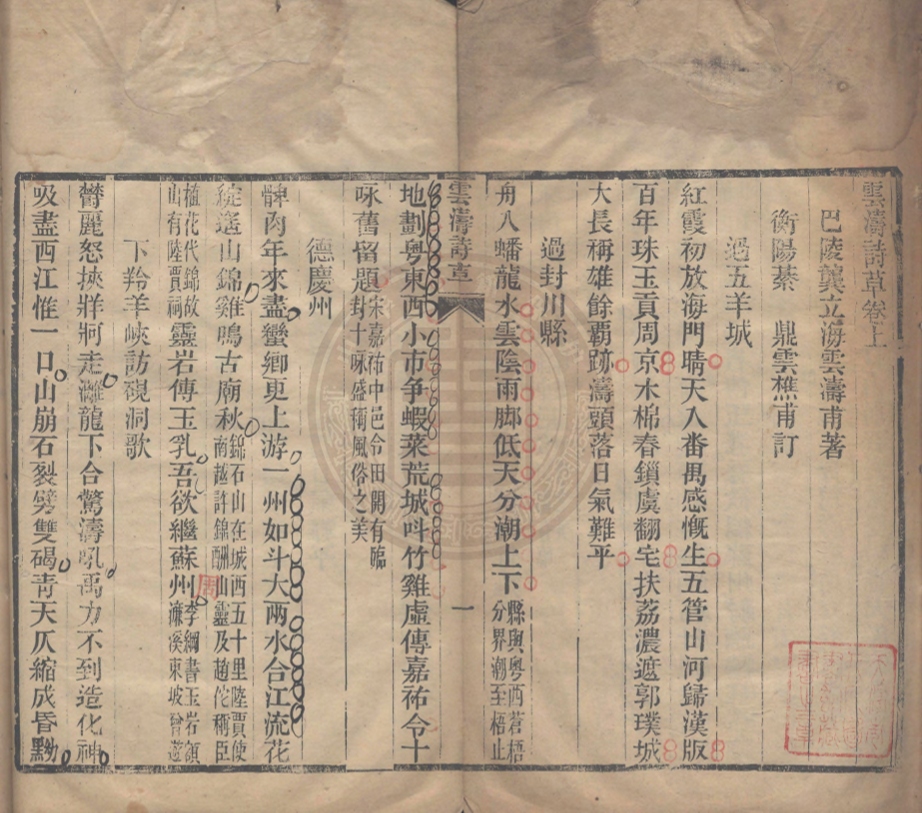 雲濤詩草卷上
巴陵龔立海雲濤甫著
衡陽綦　鼎雲樵甫訂
過五羊城
紅霞初放海門晴天入番禺感慨生五管山河歸漢版
百年珠玉貢周京木棉春鎖虞翻宅扶荔濃遮郭璞城
大長稱雄餘霸跡濤頭落日氣難平
過封川縣
舟入蟠龍水雲陰雨脚低天分潮上下縣與粤西蒼梧分界潮至梧止
雲濤詩草 一
地劃粤東西小市争蝦菜荒城呌竹雞虛傳嘉祐令十
咏舊留題宋嘉祐中邑令田開有臨封十咏盛稱風俗之美
德慶州
髀肉年來盡蠻鄉更上游一州如斗大兩水合江流花
綻遶山錦雞鳴古廟秋錦石山在城西五十里陸賈使南越許錦酬山靈及趙佗稱臣
植花代錦故山有陸賈祠靈岩傳玉乳吾欲繼蘇州李綱書玉岩額濂溪東坡曾遊
下羚羊峽訪硯洞歌
欝麗怒挾牂牁走灕龍下合驚濤吼禹力不到造化神
吸盡西江惟一口山崩石裂劈雙碣青天仄縮成昏黝